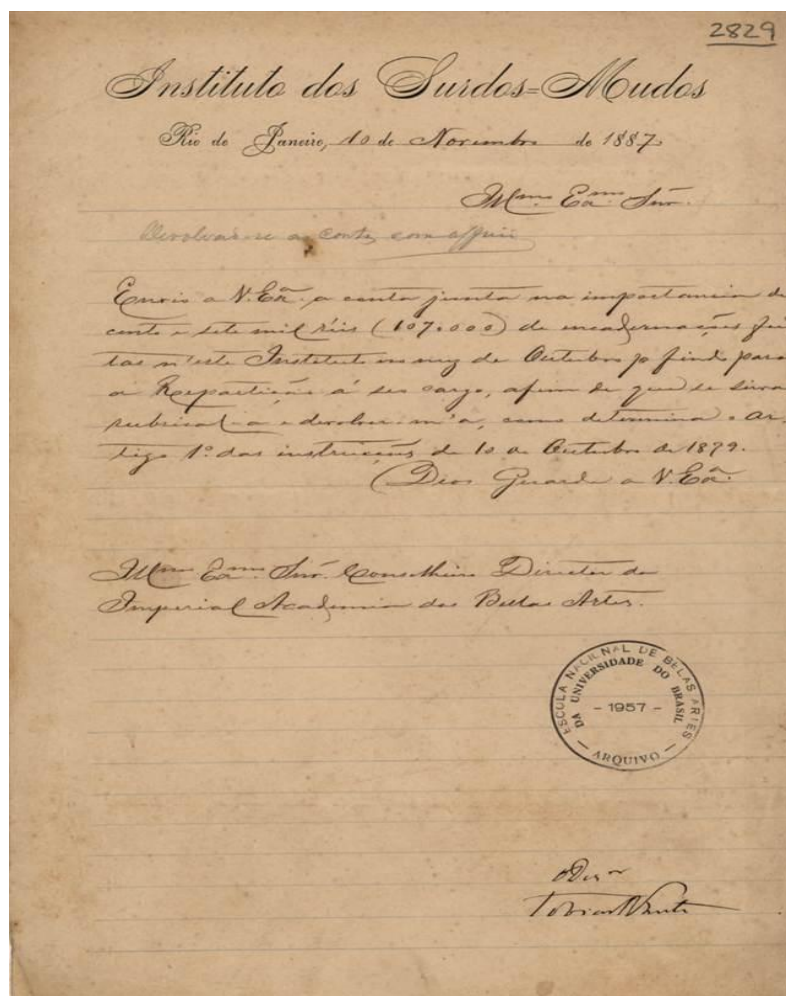 2829
Instituto dos Surdos=Mudos
Rio de Janeiro, 10 de Novembro de 1887
Illmo. Exmo. Snr.
Devolva-se a conta com officio
Envio a V. Exa. a conta junta na importancia de
cento e sete mil réis (107.000) de encadernações fei
tas n'este Instituto no mez de Outubro p. findo para
a Repartição á seu cargo, afim de que se sirva
rubrical-a e devolver-m'a, como determina o Ar-
tigo 1º das instrucções de 10 de Outubro de 1879.
Deos Guarde a V. Exa.
Illmo. Exmo. Snr. Conselheiro Director da
Imperial Academia das Bellas Artes.
ESCOLA NACIONAL DE BELAS ARTES
DA UNIVERSIDADE DO BRASIL
- 1957 -
ARQUIVO
O Dir.or
Tobias Leite